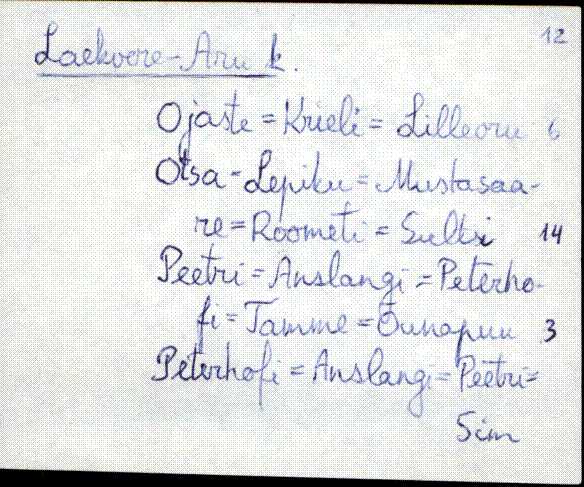 12
Laekvere-Aru k.
Ojaste = Krieli = Lilleoru 6
Otsa-Lepiku = Mustasaa-
re = Roometi = Sultsi 14
Peetri = Anslangi = Peterho-
fi = Tamme = Õunapuu 3
Peterhofi = Anslangi = Peetri =
Sim